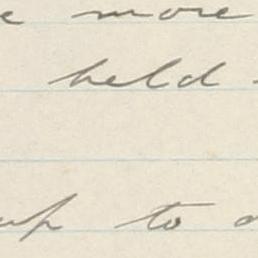 more
held
up to